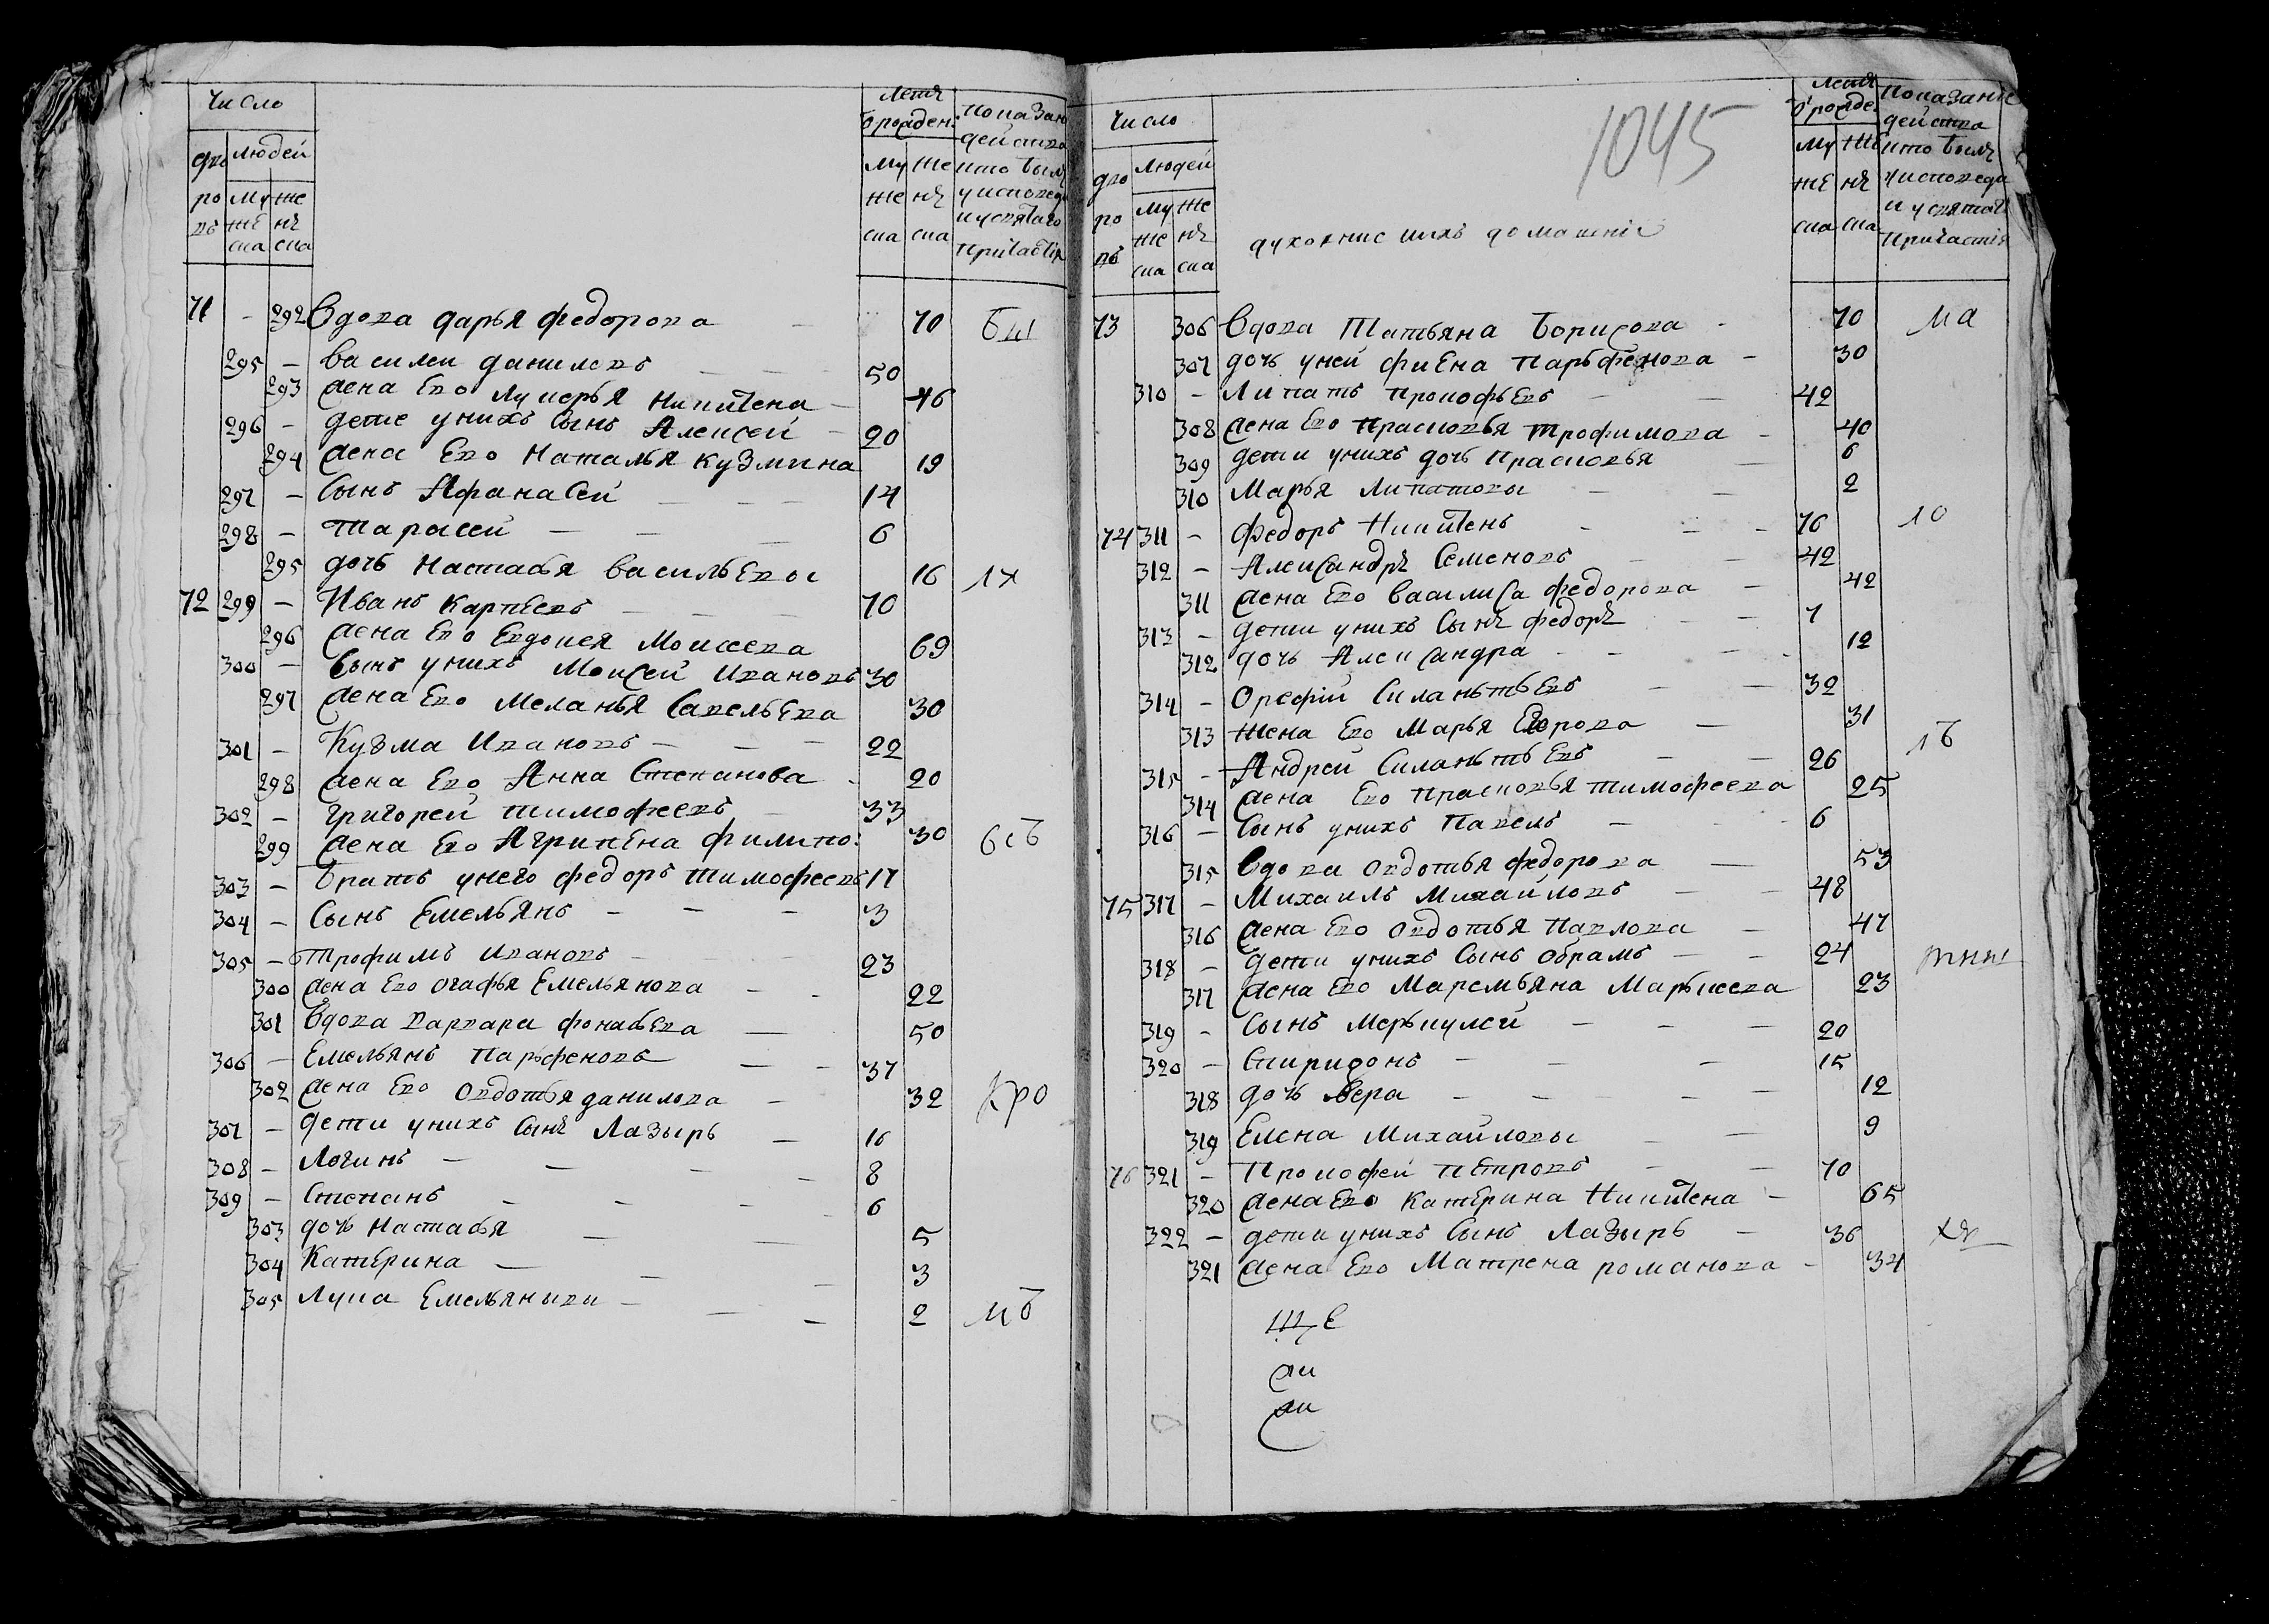 Число
дво
ро
въ
людей
му
же
ска
же
нъ
ска
летъ
Ѿрожден:
му
же
ска
же
нъ
ска
показан
действа
кто былъ
у исповеди
и у святаго
причастія
71 - 292 Вдова дарья федорова - 70
295 - василеи даниловъ - - 50
293 жена Ево лукерья никитена - 46
296 - дети унихъ сынъ Алексей - 20
294 жена Ево наталья кузмина 19
297 - Сынъ Афанасеи - - - 14
298 - тарасеи - - - 6
295 дочь настасья васильевы 16
72 299 - Иванъ карпеевъ - - - 70
296 жена Ево Евдокея Моисеева 69
300 - сынъ унихъ Моисей ивановъ 30
297 жена Ево меланья савельева 30
301 - Кузма ивановъ - - - 22
298 жена Ево Анна Степанова - 20
302 - григореи тимофеевъ - 33
299 жена Ево Агрипена филипо: 30
303 - братъ унего федоръ тимофеевъ 17
304 - Сынъ Емельянъ - - - 3
305 - трофимъ ивановъ - 23
300 жена Ево огафья Емельянова - - 22
301 вдова варвара фонасьева - 50
306 - Емельянъ парфеновъ - - 37
302 жена Ево овдотья данилова - 32
307 - дети унихъ сынъ Лазырь - 16
308 - Логинъ - - - - 8
309 - Степанъ - - - - 6
303 дочь настасья - - 5
304 Катерина - - - 3
305 лука Емельяныви - - - 2
Число
дво
ро
въ
людей
му
же
ска
же
нъ
ска
1045
духовнис ихъ домашніе
летъ
Ѿрожде:
му
же
ска
же
нъ
ска
показаніе
действа
кто былъ
у исповеди
и у святаг
причастія
73 306 Вдова татьяна борисова - 70
307 дочь уней фиена парьфенова - 30
310 - Липатъ прокофьевъ - - 42
308 жена Ево прасковья трофимова - 40
309 дети унихъ дочь прасковья - 6
310 Марья липатовы - - 2
74 311 - федоръ никитенъ - - - 76
312 - Александръ семеновъ - - 42
311 жена Ево василиса федорова - 42
313 - дети унихъ сынъ федоръ - - 7
312 дочь Александра - - - - 12
314 - Орефіи силаньтьевъ - - 32
313 жена Ево марья Егорова - 31
315 - Андреи силаньтьевъ - - 26
314 жена Ево прасковья тимофеева 25
316 - сынъ унихъ павелъ - - - 6
315 Вдова овдотья федорова - 53
75 317 - Михаилъ михаиловъ - - 48
316 жена Ево овдотья павлова - 47
318 - дети унихъ сынъ обрамъ - - 24
317 жена Ево Маремьяна Марькеева 23
319 - сынъ меркулеи - - - 20
320 - Спиридонъ - - - 15
318 дочь вера - - - - - 12
319 Елена михаиловы - - 9
76 321 - прокофеи петровъ - - 70
320 жена Ево катерина никитена - 65
322 - дети унихъ сынъ Лазырь - 36
321 жена Ево матрена романова - 34